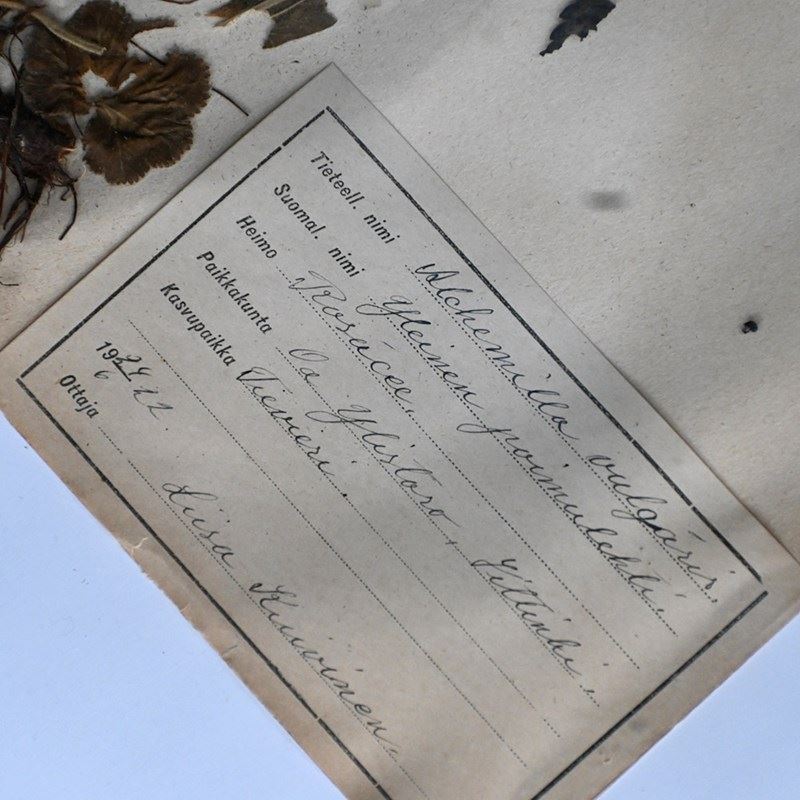 Tieteell. nimi Alchemilla vulgáris.
Suomal. nimi Yleinen poimulehti.
Heimo Rosáceæ.
Paikkakunta Oa Ylistaro, Yttinki.
Kasvupaikka Tievieri.
Ottaja Liisa